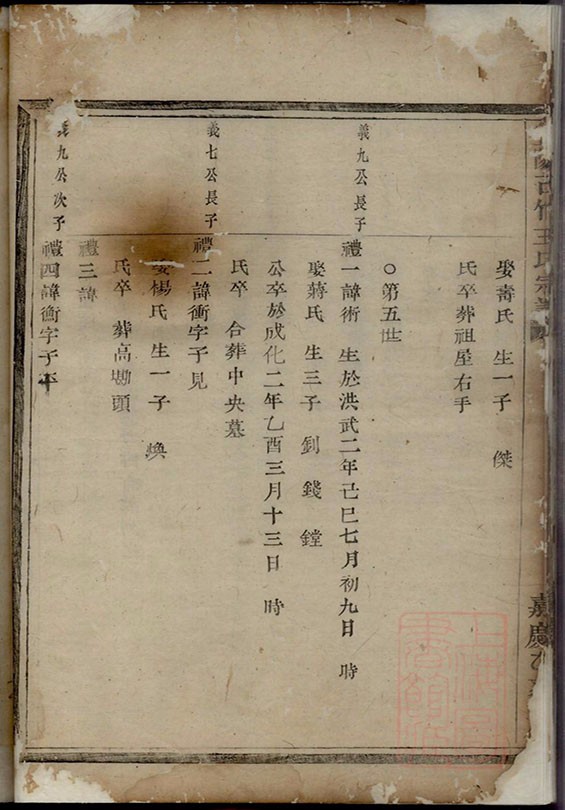 竹王氏宗譜
嘉慶
娶壽氏　生一子　傑
氏卒葬祖屋右手
○第五世
義九公長子
禮一諱術　生於洪武二年己巳七月初九日　時
娶蔣氏　生三子　釗　錢　鏜
公卒於成化二年乙酉三月十三日　時
氏卒　合葬中央墓
義七公長子
禮二諱衡字子見
娶楊氏　生一子　煥
氏卒　葬高墈頭
禮三諱
義九公次子
禮四諱衡字子平